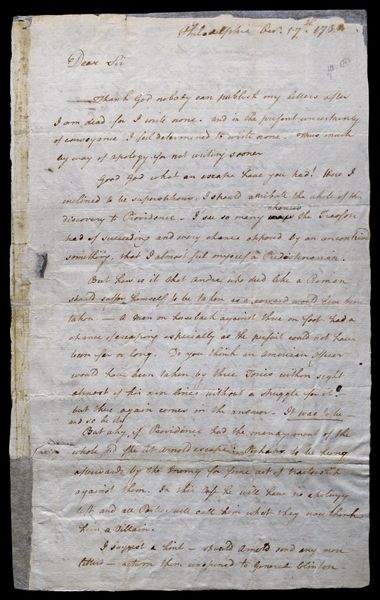 Philadelphia Oct. 17th 178
Dear Sir
Thank God nobody can publish my letters after
I am dead for I write none. and in the present uncertainty
of conveyance I feel determined to write none. thus much
by way of apology for not writing sooner
Good God what an escape have you had! Were I
inclined to be superstitious, I should attribute the whole of this
chances
discovery to Providence. I see so many ways the Treason
had of succeeding and every chance opposed by an
something, that I almost feel myself a Predestinarian.
But how is it that Andre who died like a Roman
should suffer himself to be taken as a coward would have been
taken — A man on horseback against three on foot had a
chance of escaping especially as the pursuit could not have
been far or long. Do you think an American officer
would have been taken by three Tories within sight
almost of his own lines without a struggle for it?
but here again comes in the answer. It was to be —
and so be it
But why, if Providence had the management of the
whole did she let Arnold escape. Perhaps to be hung
afterwards by the Enemy for some act of
against them. In this Case he will have no apology
left and all Parties will call him what they now think
him a Villain.
I suggest a hint — should Arnold send any more
letters — return them unopened to General Clinton